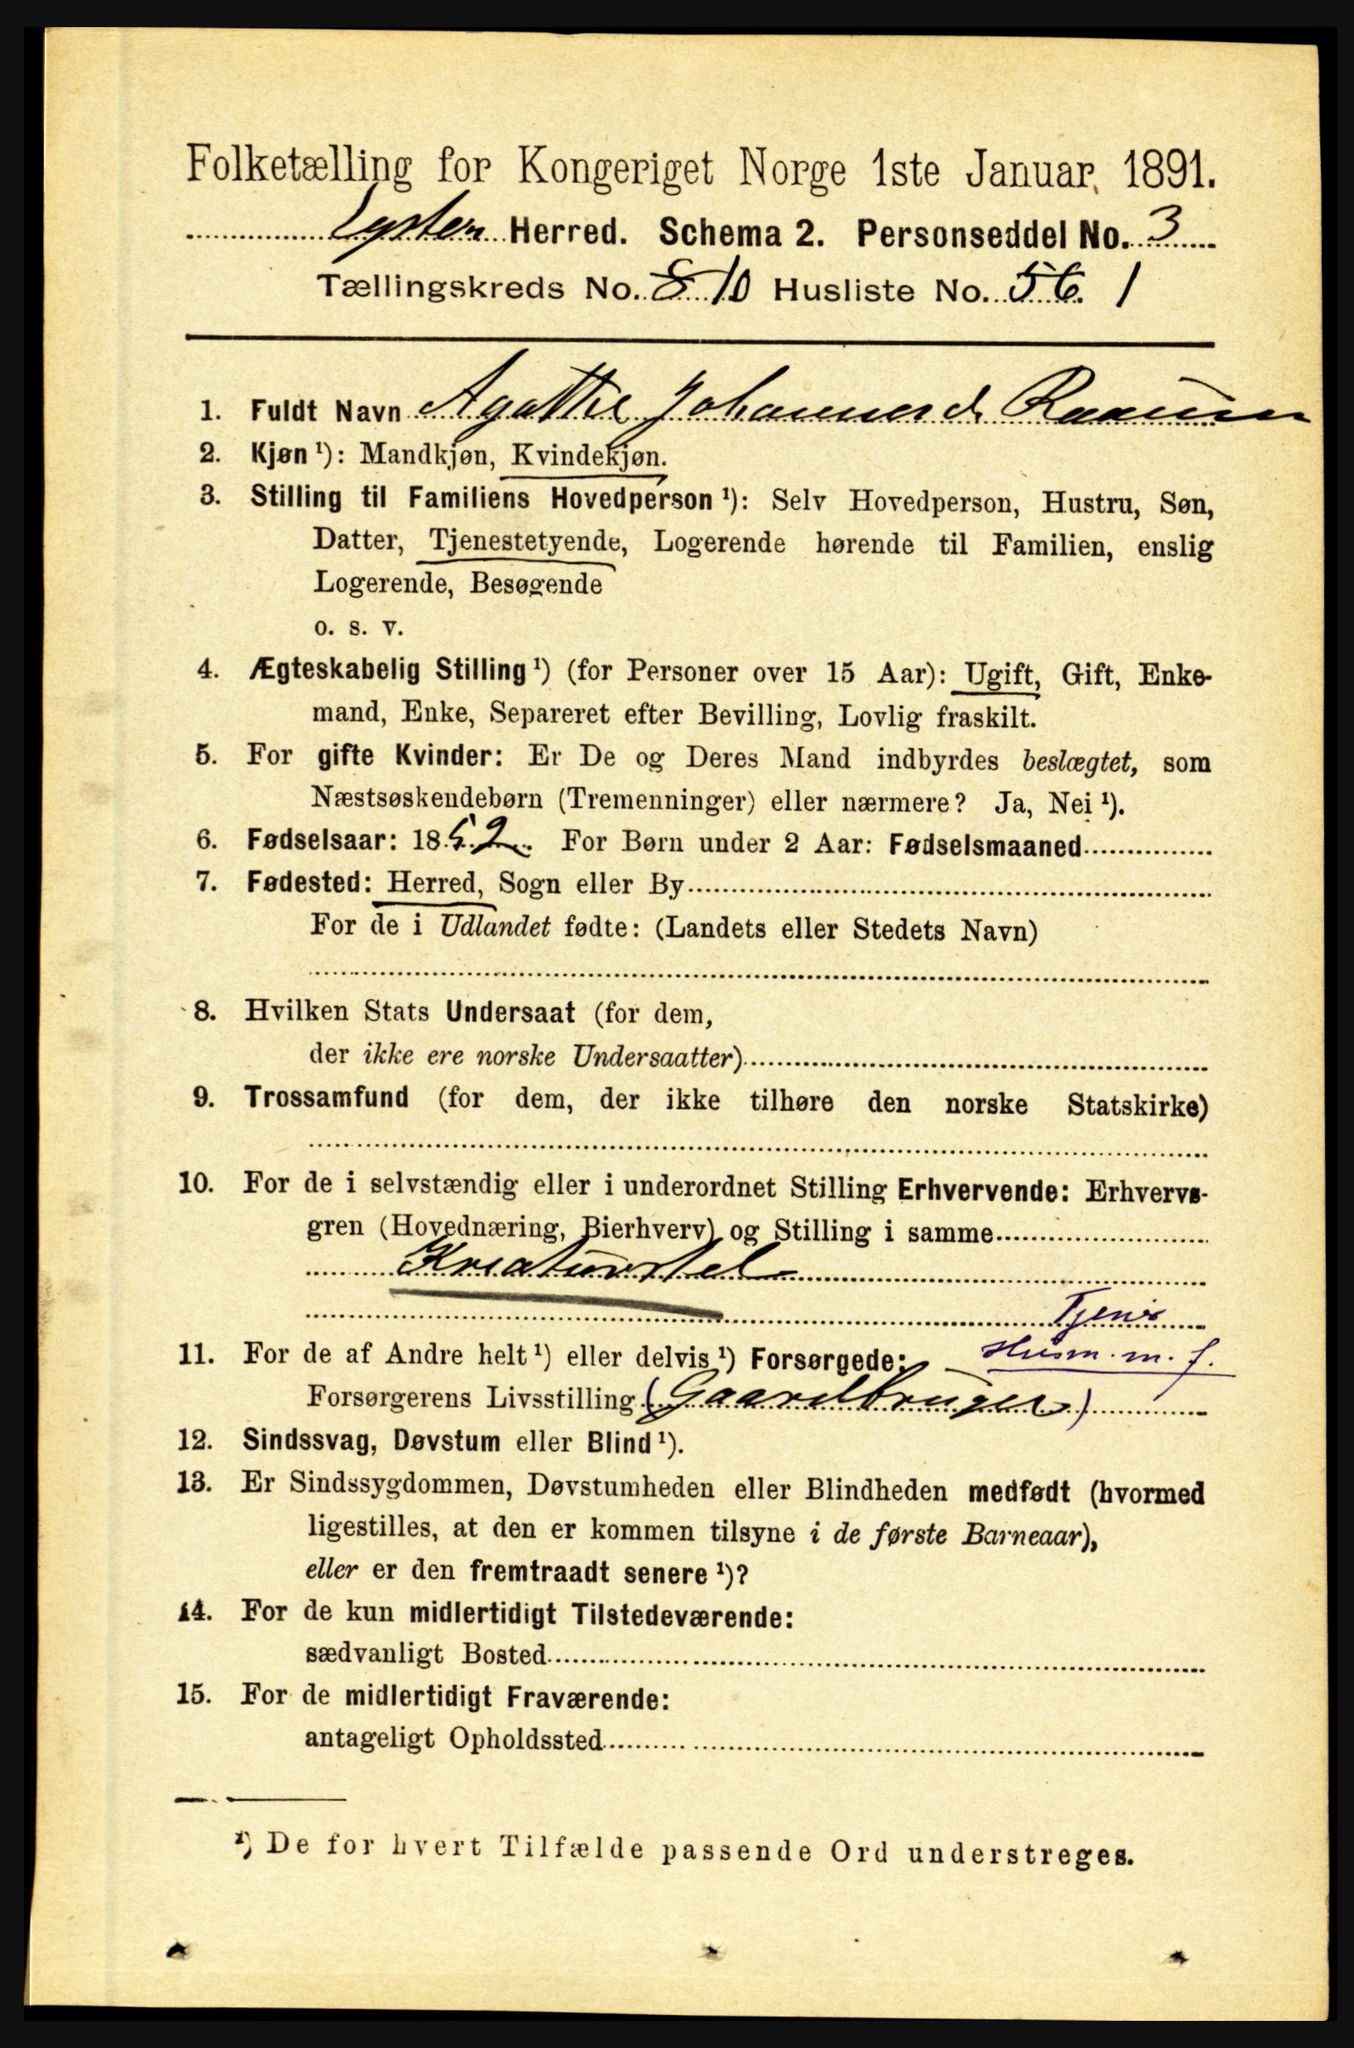 Folketælling for Kongeriget Norge 1ste Januar 1891.
Lyster Herred. Schema 2. Personseddel No. 3
Tællingskreds No. 8 10 Husliste No. 56. 1
1. Fuldt Navn Agathe Johannesd.
2. Kjøn ¹): Mandkjøn, Kvindekjøn.
3. Stilling til Familiens Hovedperson ¹): Selv Hovedperson, Hustru, Søn,
Datter, Tjenestetyende, Logerende hørende til Familien, enslig
Logerende, Besøgende
o. s. v.
4. Ægteskabelig Stilling ¹) (for Personer over 15 Aar): Ugift, Gift, Enke-
mand, Enke, Separeret efter Bevilling, Lovlig fraskilt.
5. For gifte Kvinder: Er De og Deres Mand indbyrdes beslægtet, som
Næstsøskendebørn (Tremenninger) eller nærmere? Ja, Nei ¹).
6. Fødselsaar: 1852. For Børn under 2 Aar: Fødselsmaaned
7. Fødested: Herred, Sogn eller By
For de i Udlandet fødte: (Landets eller Stedets Navn)
8. Hvilken Stats Undersaat (for dem,
der ikke ere norske Undersaatter)
9. Trossamfund (for dem, der ikke tilhøre den norske Statskirke)
10. For de i selvstændig eller i underordnet Stilling Erhvervende: Erhvervs-
gren (Hovednæring, Bierhverv) og Stilling i samme
Kreaturstel
Tjener
11. For de af Andre helt ¹) eller delvis ¹) Forsørgede: Husm. m. f.
Forsørgerens Livsstilling (Gaardbruger)
12. Sindssvag, Døvstum eller Blind ¹).
13. Er Sindssygdommen, Døvstumheden eller Blindheden medfødt (hvormed
ligestilles, at den er kommen tilsyne i de første Barneaar),
eller er den fremtraadt senere ¹)?
14. For de kun midlertidigt Tilstedeværende:
sædvanligt Bosted
15. For de midlertidigt Fraværende:
antageligt Opholdssted
¹) De for hvert Tilfælde passende Ord understreges.